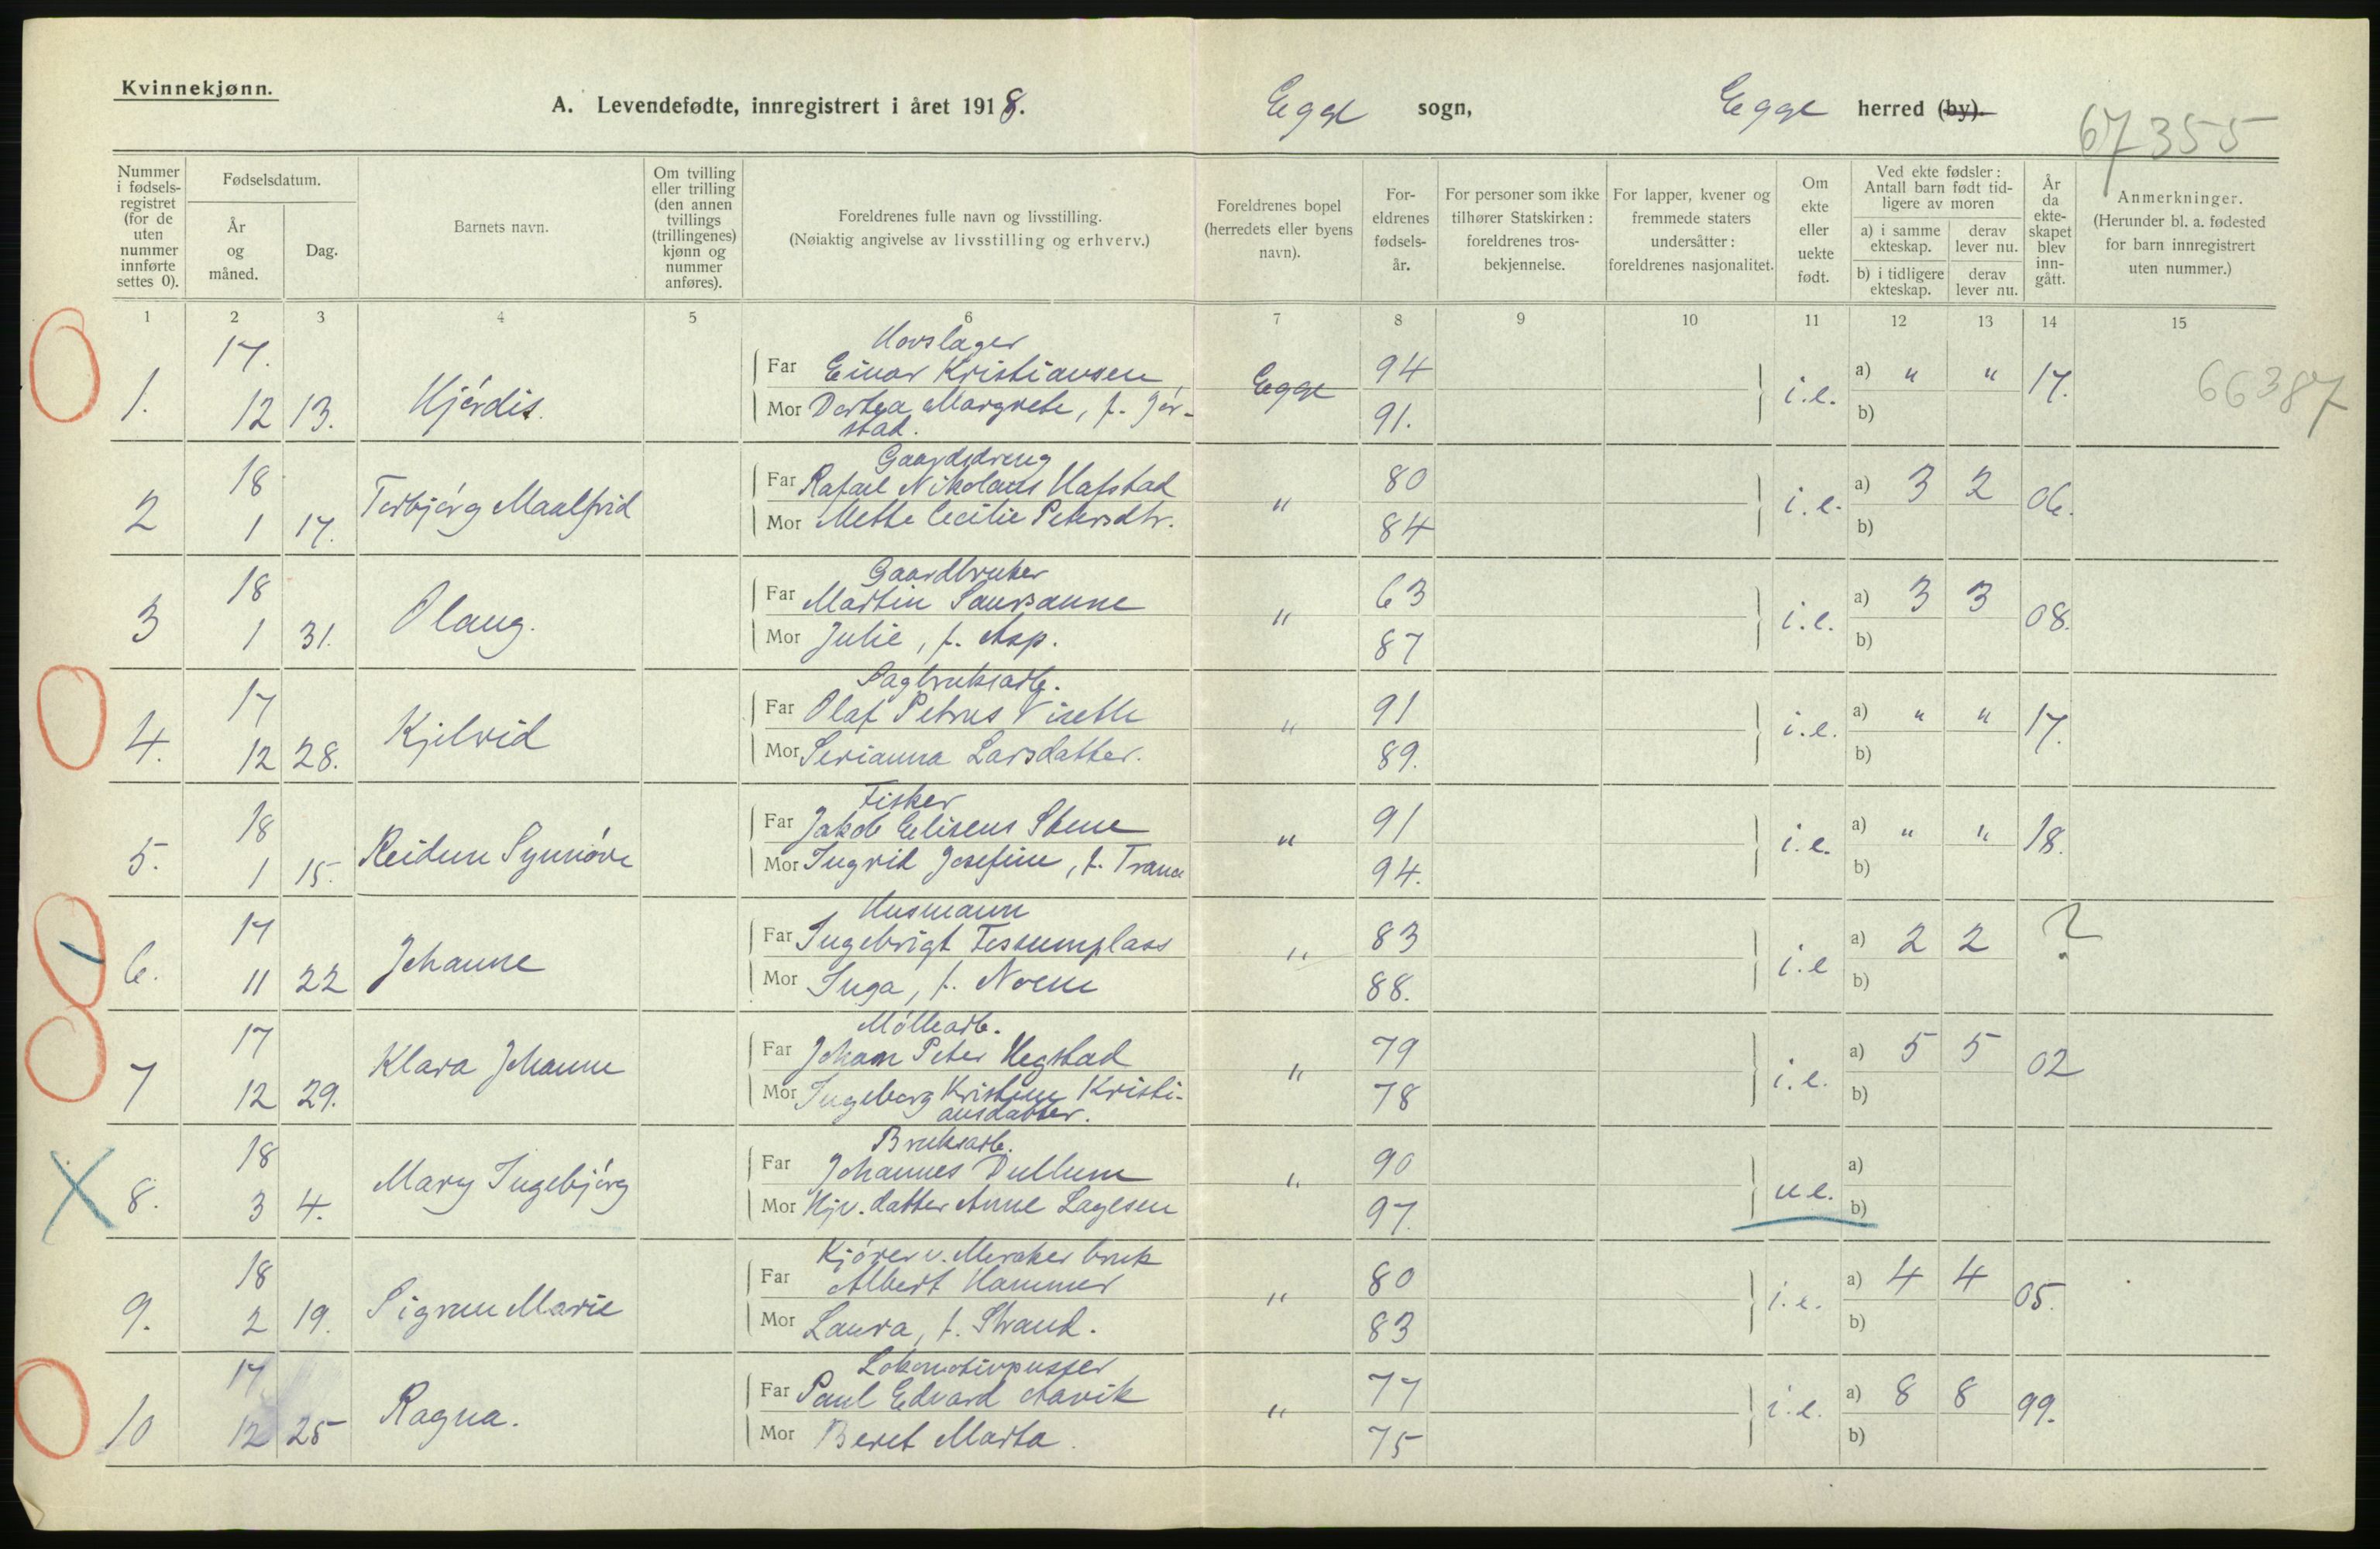 Kvinnekjønn.
A. Levendefødte, innregistrert i året 1918.
Egge sogn, Egge herred (by).
67355
Nummer i fødsels-registret (for de uten nummer innførte settes 0).
Fødselsdatum.
År og måned.
Dag.
Barnets navn.
Om tvilling eller trilling (den annen tvillings (trillingenes) kjønn og nummer anføres).
Foreldrenes fulle navn og livsstilling.
(Nøiaktig angivelse av livsstilling og erhverv.)
Foreldrenes bopel (herredets eller byens navn).
For-eldrenes fødsels-år.
For personer som ikke tilhører Statskirken: foreldrenes tros-bekjennelse.
For lapper, kvener og fremmede staters undersåtter: foreldrenes nasjonalitet.
Om ekte eller uekte født.
Ved ekte fødsler: Antall barn født tid-ligere av moren
a) i samme ekteskap.
derav lever nu.
b) i tidligere ekteskap.
derav lever nu.
År da ekte-skapet blev inn-gått.
Anmerkninger.
(Herunder bl. a. fødested for barn innregistrert uten nummer.)
1 2 3 4 5 6 7 8 9 10 11 12 13 14 15
17. Hovslager
Far Einar Kristiansen, Egge 94 a) " " 17. 66387
1. 12 13. Hjördis. i.e.
Mor Dortea Margrete, f. Jör- 91. b)
stad.
18 Gaardsdreng
Far Rafael Nikolaus Hafstad " 80 a) 3 2 06.
2 1 17. Torbjörg Maalfrid i.e.
Mor Mette Cecilie Petersdtr. 84 b)
18 Gaardbruker
Far Martin Saursaune " 63 a) 3 3 08.
3 1 31. Olaug. i.e.
Mor Julie, f. Asp. 87 b)
17 Sagbruksarb.
Far Olaf Petrus " 91 a) " " 17.
4. 12 28. Kjelvid i.e.
Mor Serianna Larsdatter. 89. b)
18 Fisker
Far Jakob Eliseus Stene " 91 a) " " 18.
5. 1 15. Reidun Synnöve i.e.
Mor Ingrid Josefine, f. Trana 94. b)
17 Husmann
Far Ingebrigt Fossumplass " 83 a) 2 2 ?
6. 11 22 Johanne i.e
Mor Inga, f. Noem 88. b)
17 Möllearb.
Far Johan Peter Hegstad " 79 a) 5 5 02
7 12 29. Klara Johanne i.e.
Mor Ingeborg Kristine Kristi- 78 b)
ansdatter.
18 Bruksarb.
Far Johannes Dullum " 90 a)
8. 3 4. Mary Ingebjörg u.e.
Mor Hjv. datter Anne Lagesen 97. b)
18 Kjörer v. Meraker bruk
Far Albert Hammer " 80 a) 4 4 05.
9. 2 19. Sigrun Marie i.e.
Mor Laura, f. Strand. 83 b)
17 Lokomotivpusser
Far Paul Edvard Aavik " 77 a) 8 8 99.
10 12 25 Ragna. i.e.
Mor Beret Marta. 75 b)